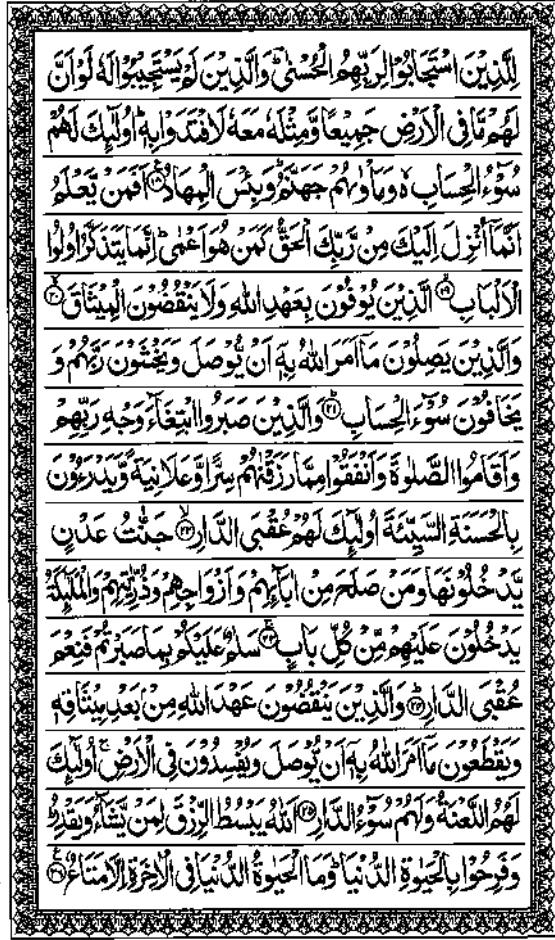 لِلَّذِيْنَ اسْتَجَابُوْا لِرَبِّهِمُ الْحُسْنٰى ؕ وَالَّذِيْنَ لَمْ يَسْتَجِيْبُوْا لَهٗ لَوْ اَنَّ
لَهُمْ مَّا فِى الْاَرْضِ جَمِيْعًا وَّمِثْلَهٗ مَعَهٗ لَافْتَدَوْا بِهٖ ؕ اُولٰٓئِكَ لَهُمْ
سُوْٓءُ الْحِسَابِ ۙ وَمَاْوٰىهُمْ جَهَنَّمُ ؕ وَبِئْسَ الْمِهَادُ ﴿۱۸﴾ اَفَمَنْ يَّعْلَمُ
اَنَّمَآ اُنْزِلَ اِلَيْكَ مِنْ رَّبِّكَ الْحَقُّ كَمَنْ هُوَ اَعْمٰى ؕ اِنَّمَا يَتَذَكَّرُ اُولُوا
الْاَلْبَابِ ﴿۱۹﴾ الَّذِيْنَ يُوْفُوْنَ بِعَهْدِ اللّٰهِ وَلَا يَنْقُضُوْنَ الْمِيْثَاقَ ﴿۲۰﴾
وَالَّذِيْنَ يَصِلُوْنَ مَآ اَمَرَ اللّٰهُ بِهٖٓ اَنْ يُّوْصَلَ وَيَخْشَوْنَ رَبَّهُمْ وَ
يَخَافُوْنَ سُوْٓءَ الْحِسَابِ ﴿۲۱﴾ وَالَّذِيْنَ صَبَرُوا ابْتِغَآءَ وَجْهِ رَبِّهِمْ
وَاَقَامُوا الصَّلٰوةَ وَاَنْفَقُوْا مِمَّا رَزَقْنٰهُمْ سِرًّا وَّعَلَانِيَةً وَّيَدْرَءُوْنَ
بِالْحَسَنَةِ السَّيِّئَةَ اُولٰٓئِكَ لَهُمْ عُقْبَى الدَّارِ ﴿۲۲﴾ جَنّٰتُ عَدْنٍ
يَّدْخُلُوْنَهَا وَمَنْ صَلَحَ مِنْ اٰبَآئِهِمْ وَاَزْوَاجِهِمْ وَذُرِّيّٰتِهِمْ وَالْمَلٰٓئِكَةُ
يَدْخُلُوْنَ عَلَيْهِمْ مِّنْ كُلِّ بَابٍ ﴿۲۳﴾ سَلٰمٌ عَلَيْكُمْ بِمَا صَبَرْتُمْ فَنِعْمَ
عُقْبَى الدَّارِ ﴿۲۴﴾ وَالَّذِيْنَ يَنْقُضُوْنَ عَهْدَ اللّٰهِ مِنْۢ بَعْدِ مِيْثَاقِهٖ
وَيَقْطَعُوْنَ مَآ اَمَرَ اللّٰهُ بِهٖٓ اَنْ يُّوْصَلَ وَيُفْسِدُوْنَ فِى الْاَرْضِ ۙ اُولٰٓئِكَ
لَهُمُ اللَّعْنَةُ وَلَهُمْ سُوْٓءُ الدَّارِ ﴿۲۵﴾ اَللّٰهُ يَبْسُطُ الرِّزْقَ لِمَنْ يَّشَآءُ وَيَقْدِرُ ؕ
وَفَرِحُوْا بِالْحَيٰوةِ الدُّنْيَا ؕ وَمَا الْحَيٰوةُ الدُّنْيَا فِى الْاٰخِرَةِ اِلَّا مَتَاعٌ ﴿۲۶﴾